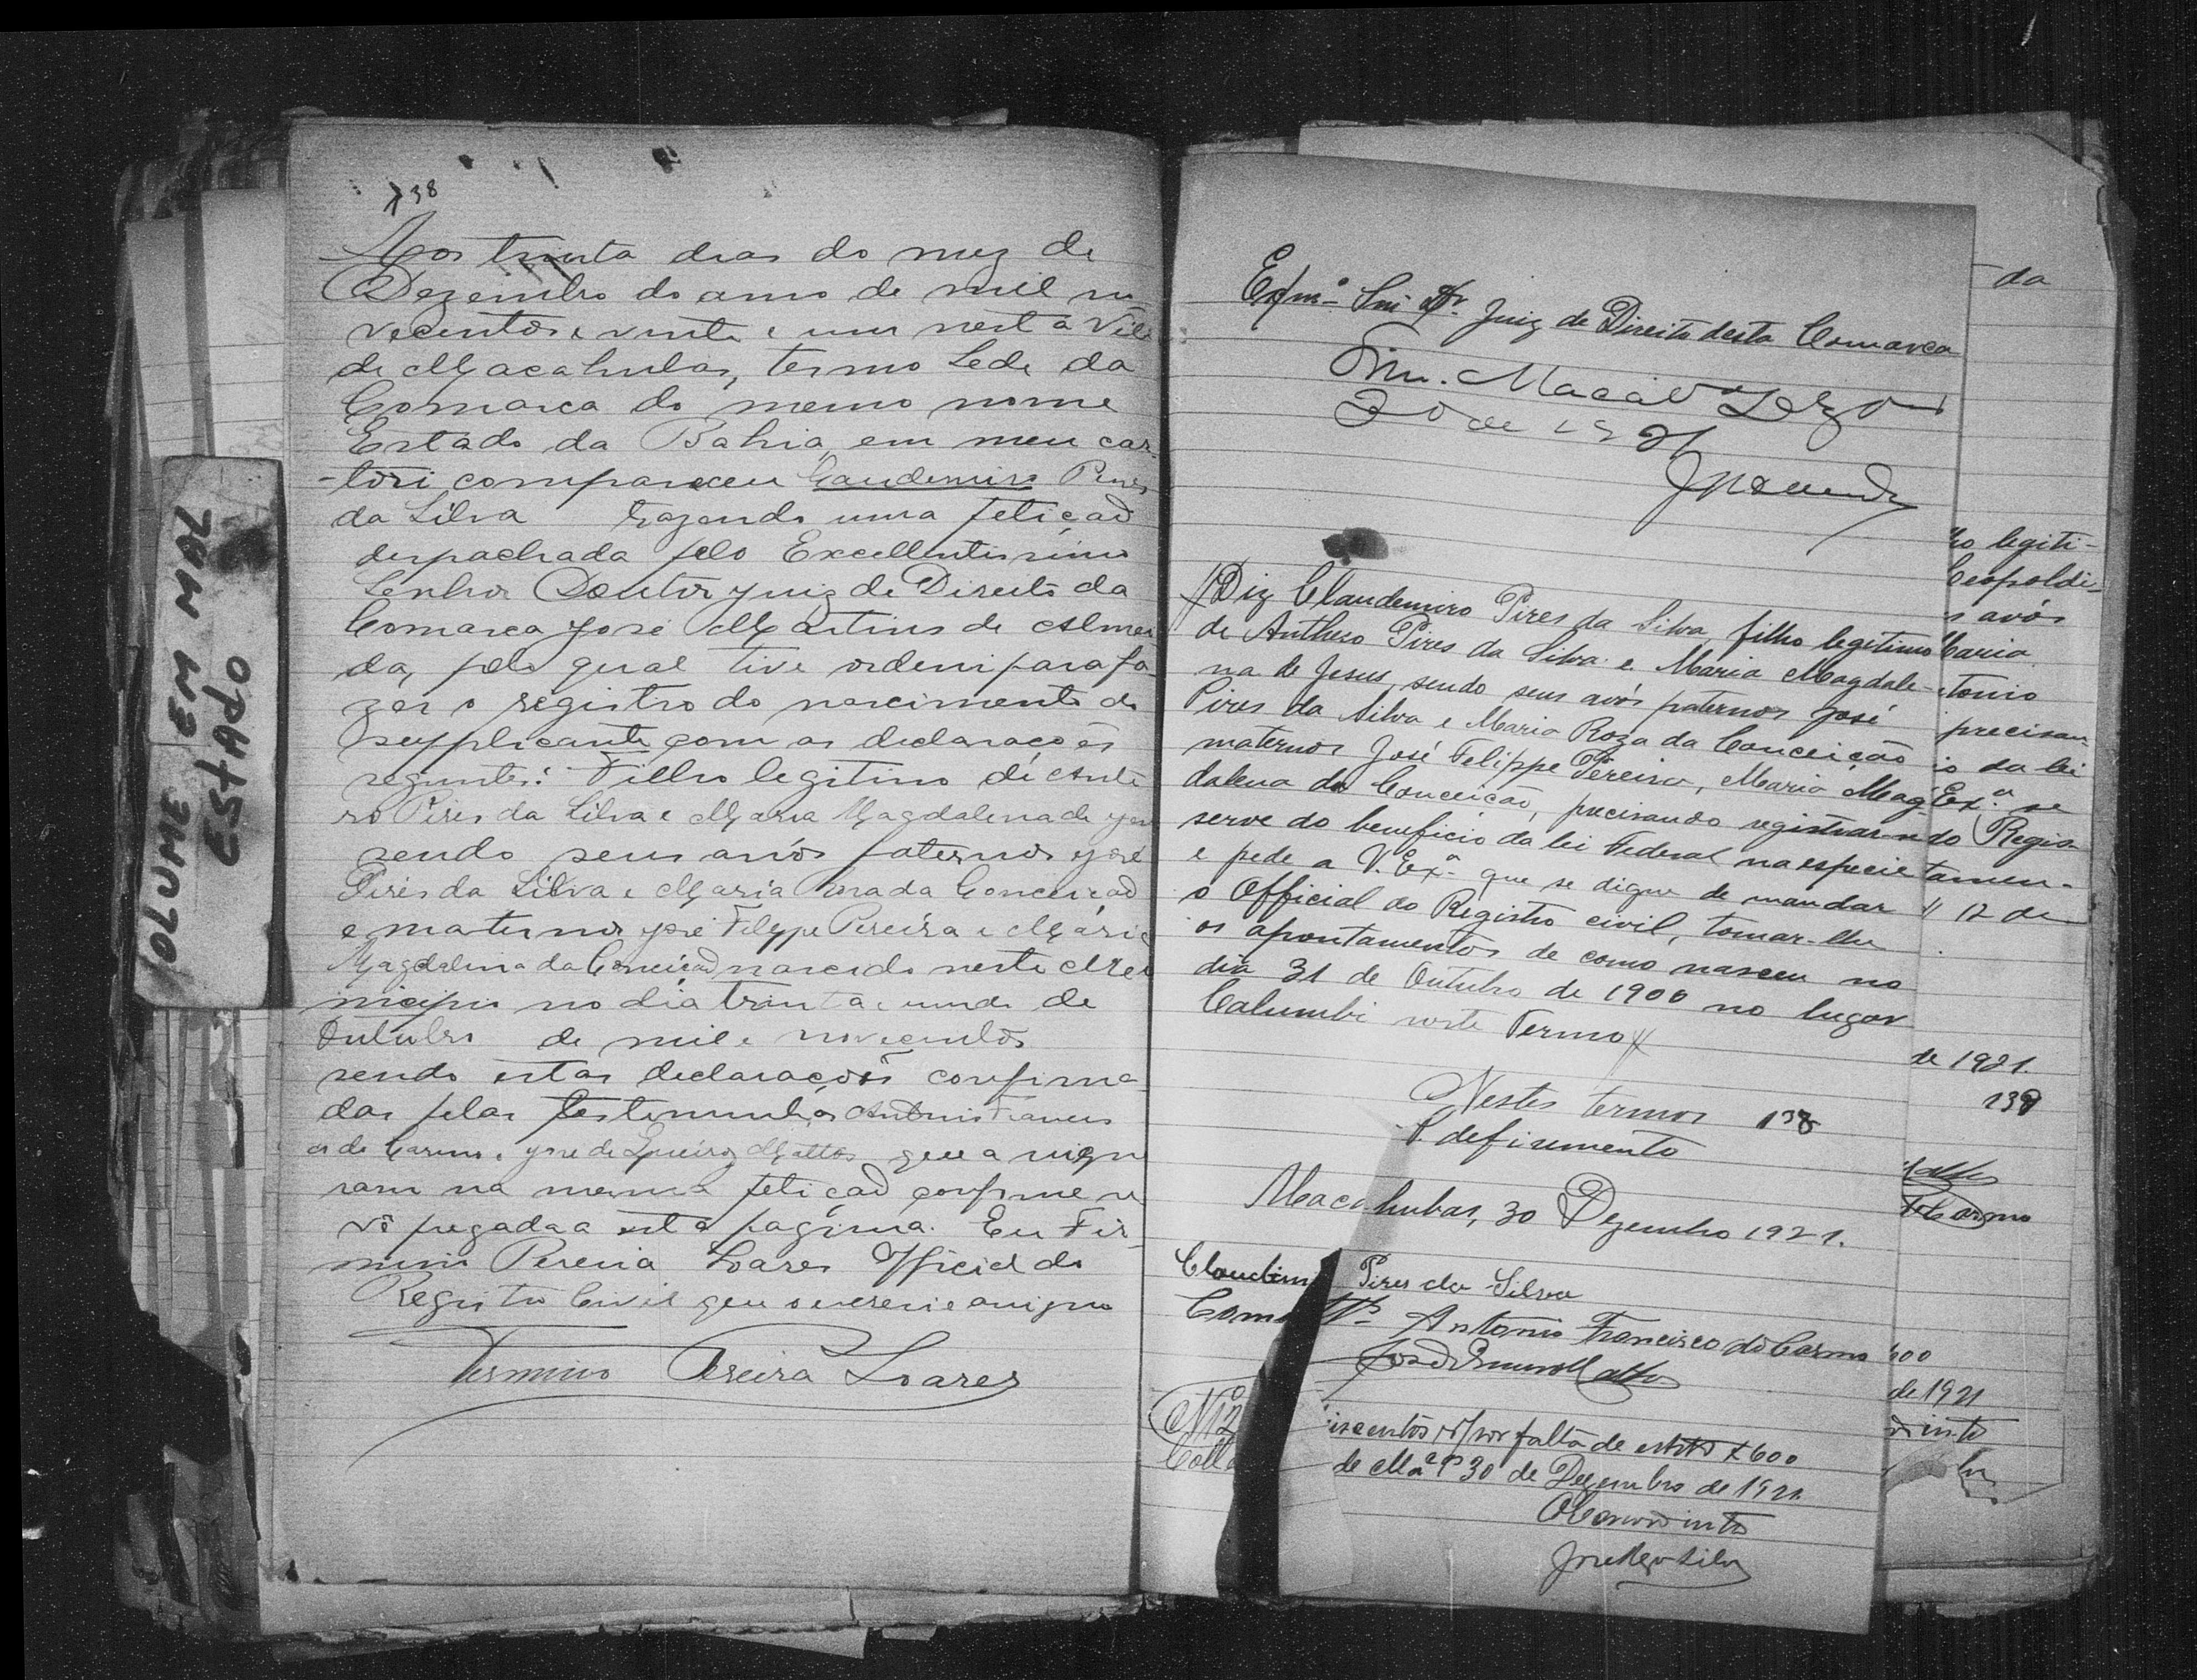 138
Aos trinta dias do mez de
Dezembro do anno de mil no
vecentos e vinte e um nesta Villa
de Macahubas, termo Sede da
Comarca do mesmo nome
Estado da Bahia, em meu car-
-tori compareceu Claudemiro Pires
da Silva trazendo uma petiçaõ
despachada pelo Excellentissimo
Senhor Doutor Juiz de Direito da
Comarca José Martins de Almei
da, pelo qual tive ordem para fa-
zer o registro do nascimento do
supplicante com as declaracões
seguintes: Filho legitimo de Ante
ro Pires da Silva e Maria Magdalena de
sendo seus avós paternos José
Pires da Silva e Maria da Conceiçaõ
e maternos José Felippe Pereira e Maria
Magdalena da Conceiçaõ nascido neste Mu
nicipio no dia trinta e um de
Outubro de mil e novecentos
sendo estas declarações confirma
das pelas testemunhas Antonio Francis
co do Carmo e José de Queiroz Mattos que assigna
ram na mesma petiçaõ conforme se
vê pregada a esta pagina. Eu Fir-
mino Pereira Soares Official do
Registro Civil que o escrevi e assigno
Firmino Pereira Soares
VOLUME EM MAL
ESTADO
Exmº Snr Dr. Juiz de Direito desta Comarca
Sim. Macaº Dezbrº
30 de 1921
//Diz Claudemiro Pires da Silva, filho legitimo
de Anthero Pires da Silva e Maria Magdale-
na de Jesus, sendo seus avós paternos José
Pires da Silva e Maria Roza da Conceição
maternos José Felippe Pereira, Maria Mag-
dalena da Conceição, precisando registrar-se
serve do beneficio da lei Federal na especie
e pede a V. Exª que se digne de mandar
o Official do Registro civil, tomar-lhe
os apontamentos de como nasceu no
dia 31 de Outubro de 1900 no lugar
Calumbi neste Termo//
Nestes termos 138
P. deferimento
Macahubas, 30 Dezembro 1921.
Claudemi Pires da Silva
Com Tª Antonio Francisco do Carmo
José Mattos
Nº 12
Coll
iscentos por falta de 600
de 30 de Dezembro de 1921.
da
legiti-
Leopoldi-
s avós
Maria
tonio
precisan-
io da lei
Exª se
do Regis-
tamen-
12 de
de 1921.
139
Carmo
600
de 1921